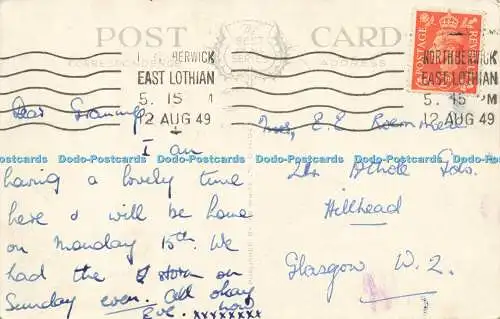 POST CARD
CORRESPONDENCE
ADDRESS
SERIES
NORTH BERWICK
EAST LOTHIAN
5. 45 PM
12 AUG 49
BERWICK
EAST LOTHIAN
5. 15
12 AUG 49
POSTAGE
REVENUE
Dear Granny
I am
having a lovely time
here I will be home
on Monday 15th. We
had the storm on
Sunday even. All okay
Eve. now
xxxxxxxx
E.E
Athole Gdns.
Hillhead
Glasgow W.2.
Dodo-Postcards Dodo-Postcards Dodo-Postcards Dodo-Postcards Dodo-Postcards